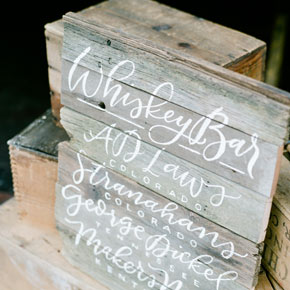 Whiskey Bar
AD Laws
COLORADO
Stranahans
COLORADO
George Dickel
TENNESSEE
Makers